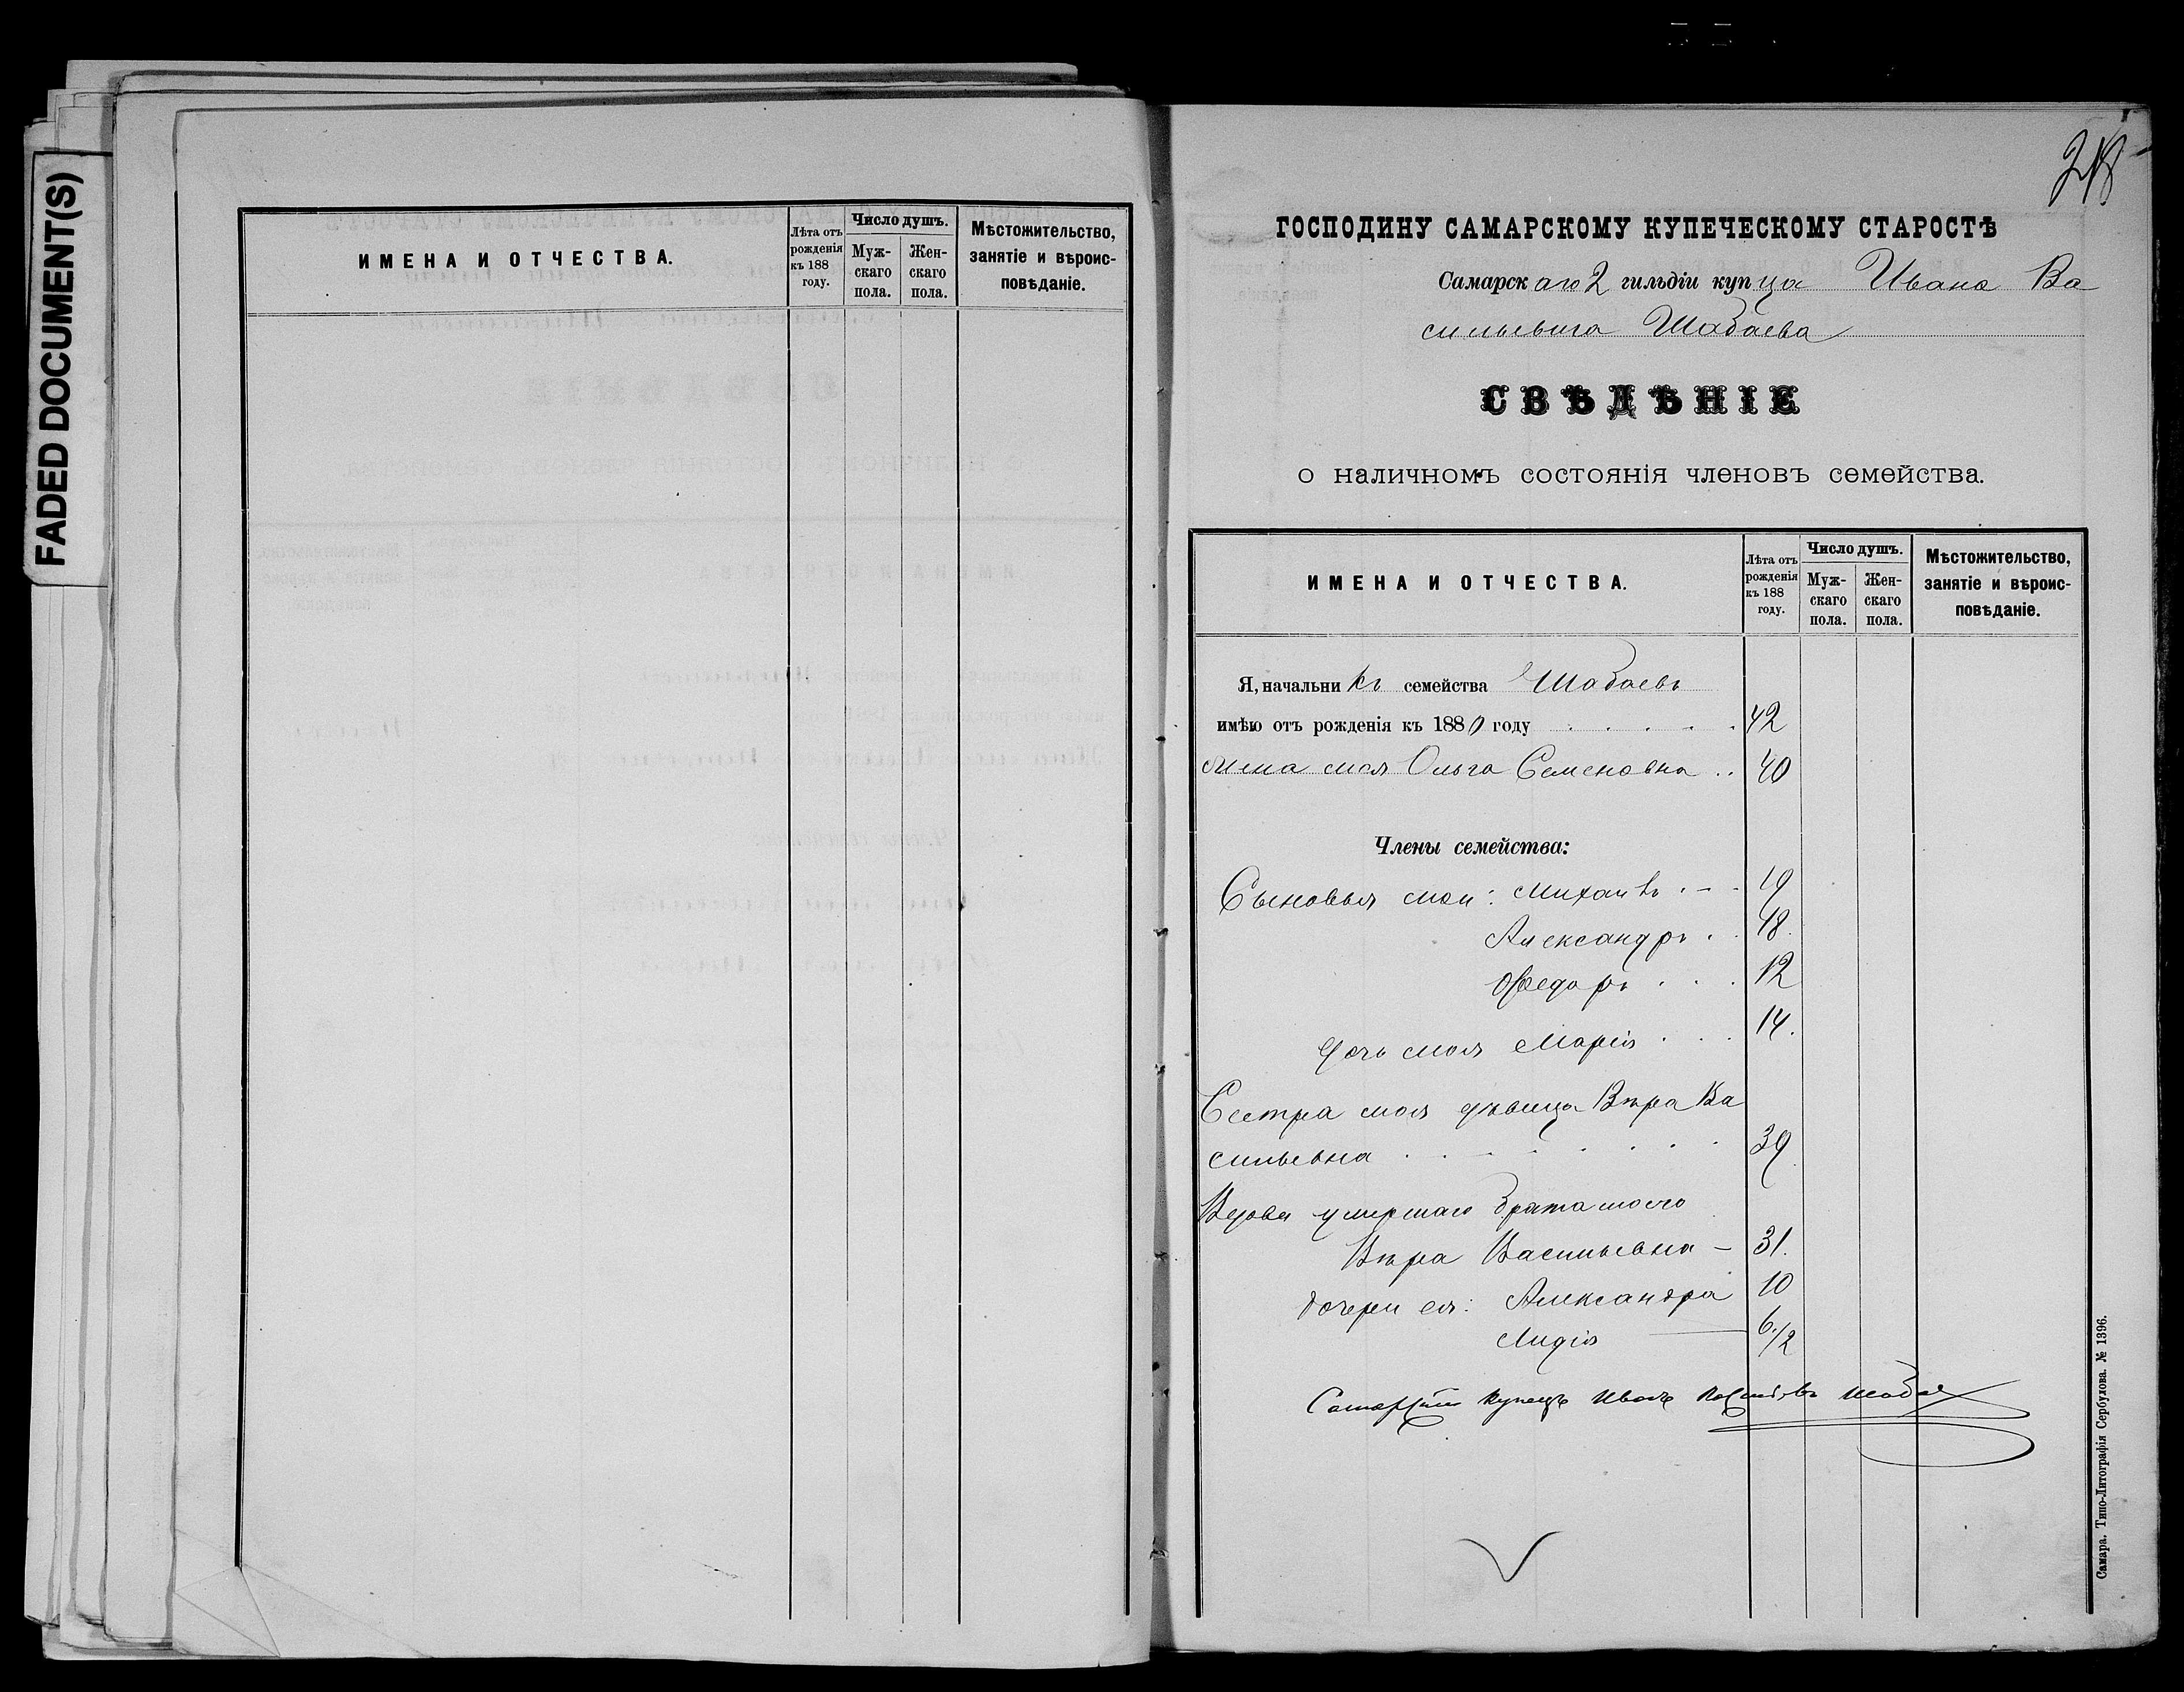 FADED DOCUMENT(S)
ИМЕНА И ОТЧЕСТВА.
Лѣта отъ рожденія къ 188 году.
Число душъ.
Мужскаго пола.
Женскаго пола.
Мѣстожительство,
занятіе и вѣроис-
повѣданіе.
218
ГОСПОДИНУ САМАРСКОМУ КУПЕЧЕСКОМУ СТАРОСТѢ
Самарскаго 2 гильдіи купца Ивана Ва
сильевича Шабаева
СВѢДѢНІЕ
о наличномъ состоянія членовъ семейства.
ИМЕНА И ОТЧЕСТВА.
Лѣта отъ
рожденія
къ 188
году.
Число душъ.
Муж-
скаго
пола.
Жен-
скаго
пола.
Мѣстожительство,
занятіе и вѣроис-
повѣданіе.
Я, начальникъ семейства Шабаевъ
имѣю отъ рожденія къ 1880 году 42
Жена моя Ольга Семеновна .. 40
Члены семейства:
Сыновья мои: Михаилъ 19
Александръ 18.
Федоръ 12
Дочь моя Марія 14.
Сестра моя дѣвица Вѣра Ва
сильевна 39
Вдова умершаго брата моего
Вѣра Васильевна — 31.
дочери ея: Александра 10
Лидія 6 1/2
Самарскій купецъ Иванъ Васильевъ Шабаев
Самара. Типо-Литографія Сербулова. № 1396.